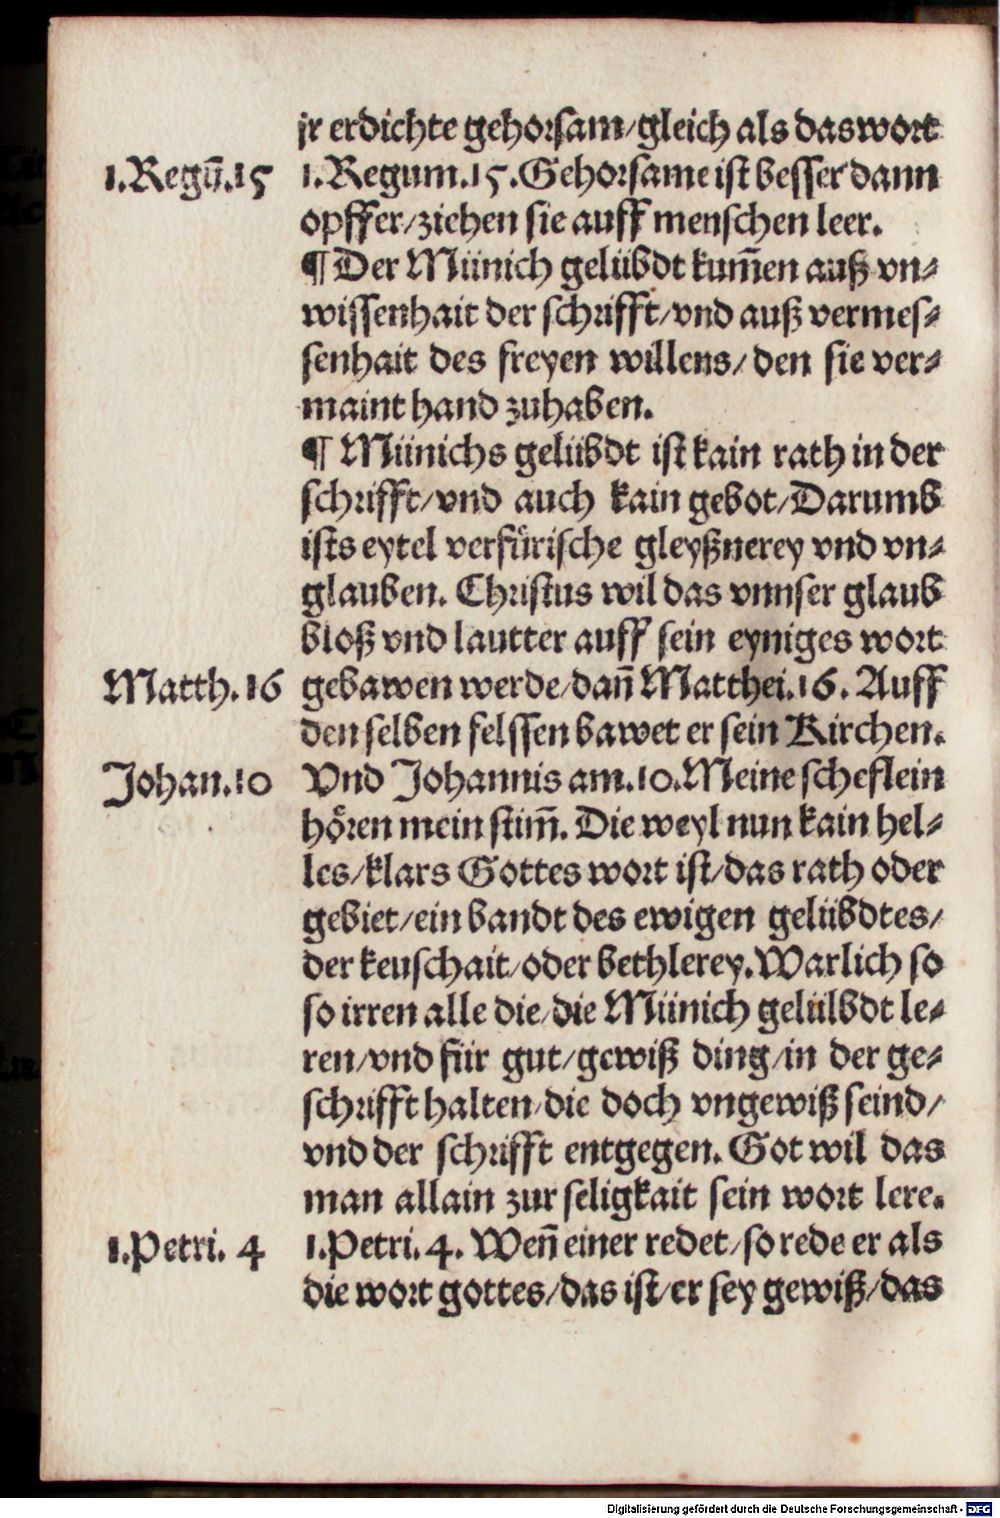 jr erdichte gehorsam/gleich als das wort
1.Regū.15 1.Regum.15.Gehorsame ist besser dann
opffer/ziehen sie auff menschen leer.
¶ Der Münich gelübdt kum̄en auß vn-
wissenhait der schrifft/vnd auß vermes-
senhait des freyen willens/den sie ver-
maint hand zuhaben.
¶ Münichs gelübdt ist kain rath in der
schrifft/vnd auch kain gebot/Darumb
ists eytel verfürische gleyßnerey vnd vn-
glauben. Christus wil das vnnser glaub
bloß vnd lautter auff sein eyniges wort
Matth.16 gebawen werde/dan̄ Matthei.16. Auff
den selben felssen bawet er sein Kirchen.
Johan.10 Vnd Johannis am.10.Meine scheflein
hören mein stim̄. Die weyl nun kain hel-
les/klars Gottes wort ist/das rath oder
gebiet/ein bandt des ewigen gelübdtes/
der keuschait/oder bethlerey.Warlich so
so irren alle die/die Münich gelülbdt le-
ren/vnd für gut/gewiß ding/in der ge-
schrifft halten/die doch vngewiß seind/
vnd der schrifft entgegen. Got wil das
man allain zur seligkait sein wort lere.
1.Petri. 4 1.Petri.4. Wen̄ einer redet/so rede er als
die wort gottes/das ist/er sey gewiß/das
Digitalisierung gefördert durch die Deutsche Forschungsgemeinschaft - DFG